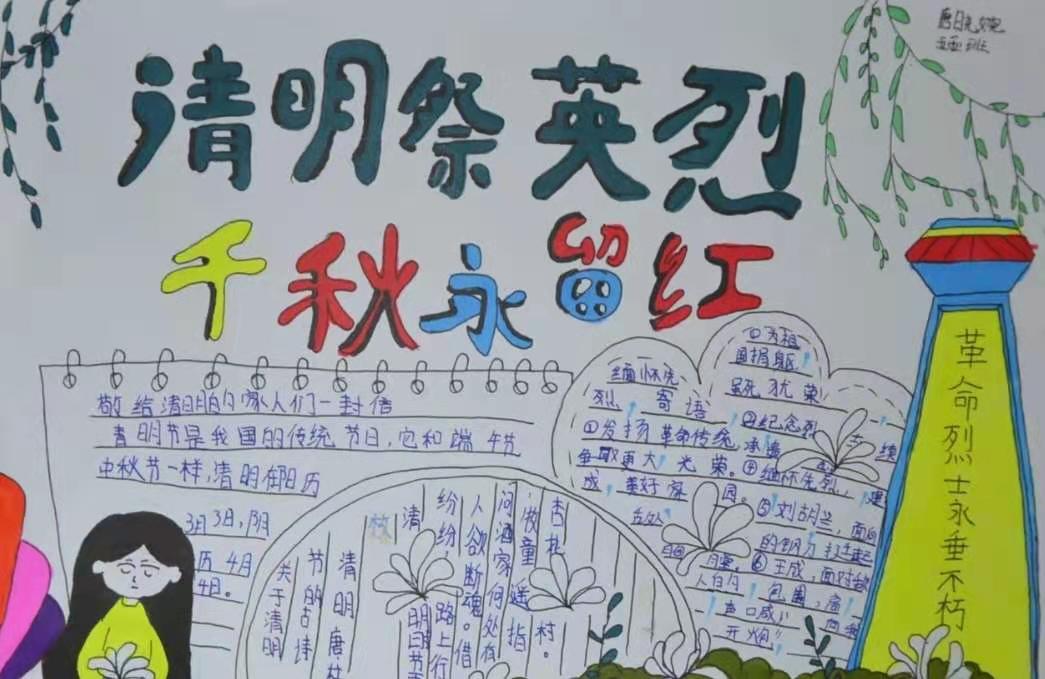 清明祭英烈
千秋永留红
五班
革命烈士永垂不朽
敬给清明的家人们一封信
青明节是我国的传统节日,它和端午节
中秋节一样,清明在阳历
3月3日,阴
历4月
4日。
缅怀先
烈,寄语
①发扬革命传统,承
争取更大光荣。④缅怀先烈,建
成,美好家园。
①为祖
国捐躯,
虽死犹荣!
②纪念烈
⑤刘胡兰,面向
的钢刀
⑥王成,面对敌
人的包围,高
声口成,向我
开炮!
关于清明
节的古诗
清明唐杜
清
明
节
纷纷,路上行
人欲断魂。借
问酒家何处有
牧童遥指
杏花
村。